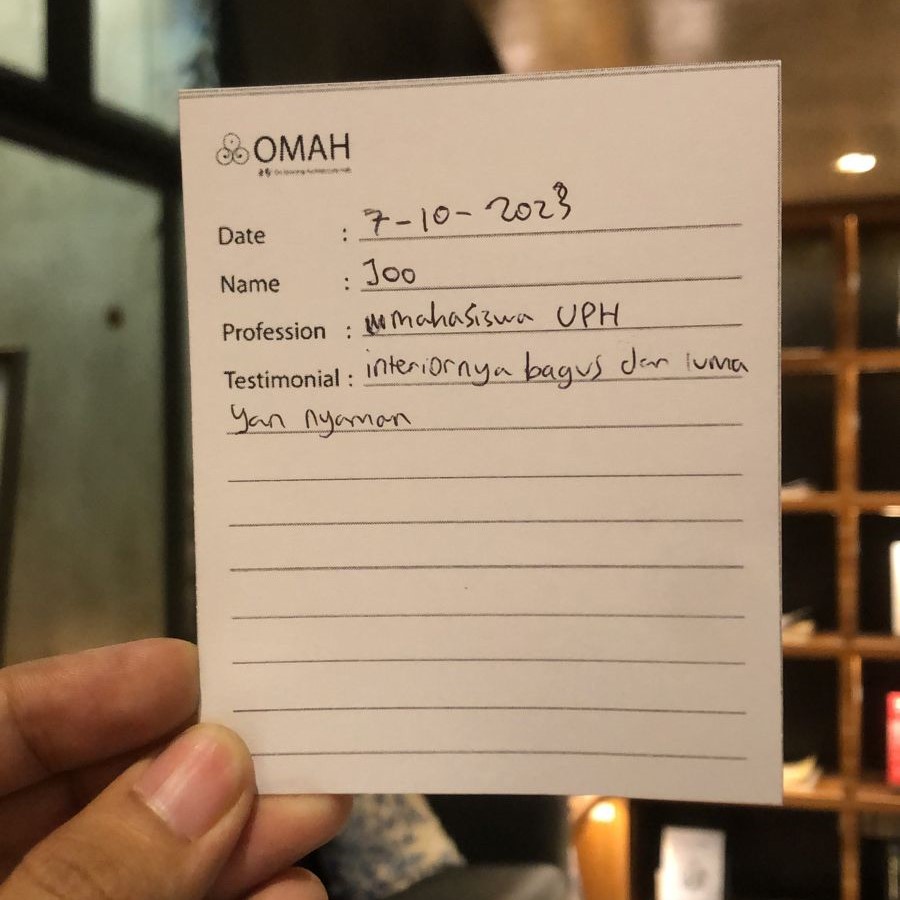 OMAH
Date : 7-10-2023
Name : Joo
Profession : mahasiswa UPH
Testimonial : interiornya bagus dan luma
yan nyaman